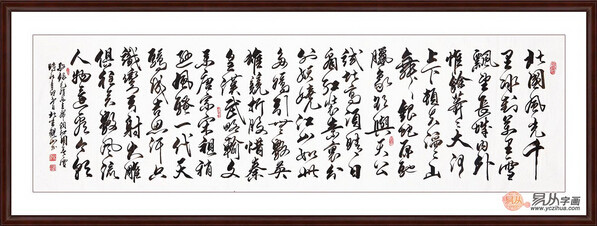 北國風光千
里冰封萬里雪
飄望長城內外
惟餘莽莽大河
上下頓失滔滔山
舞銀蛇原馳
蠟象欲與天公
試比高須晴日
看紅裝素裹分
外妖嬈江山如此
多嬌引無數英
雄競折腰惜秦
皇漢武略輸文
采唐宗宋祖稍
遜風騷一代天
驕成吉思汗只
識彎弓射大雕
俱往矣數風流
人物還看今朝
易从字画
www.yczihua.com